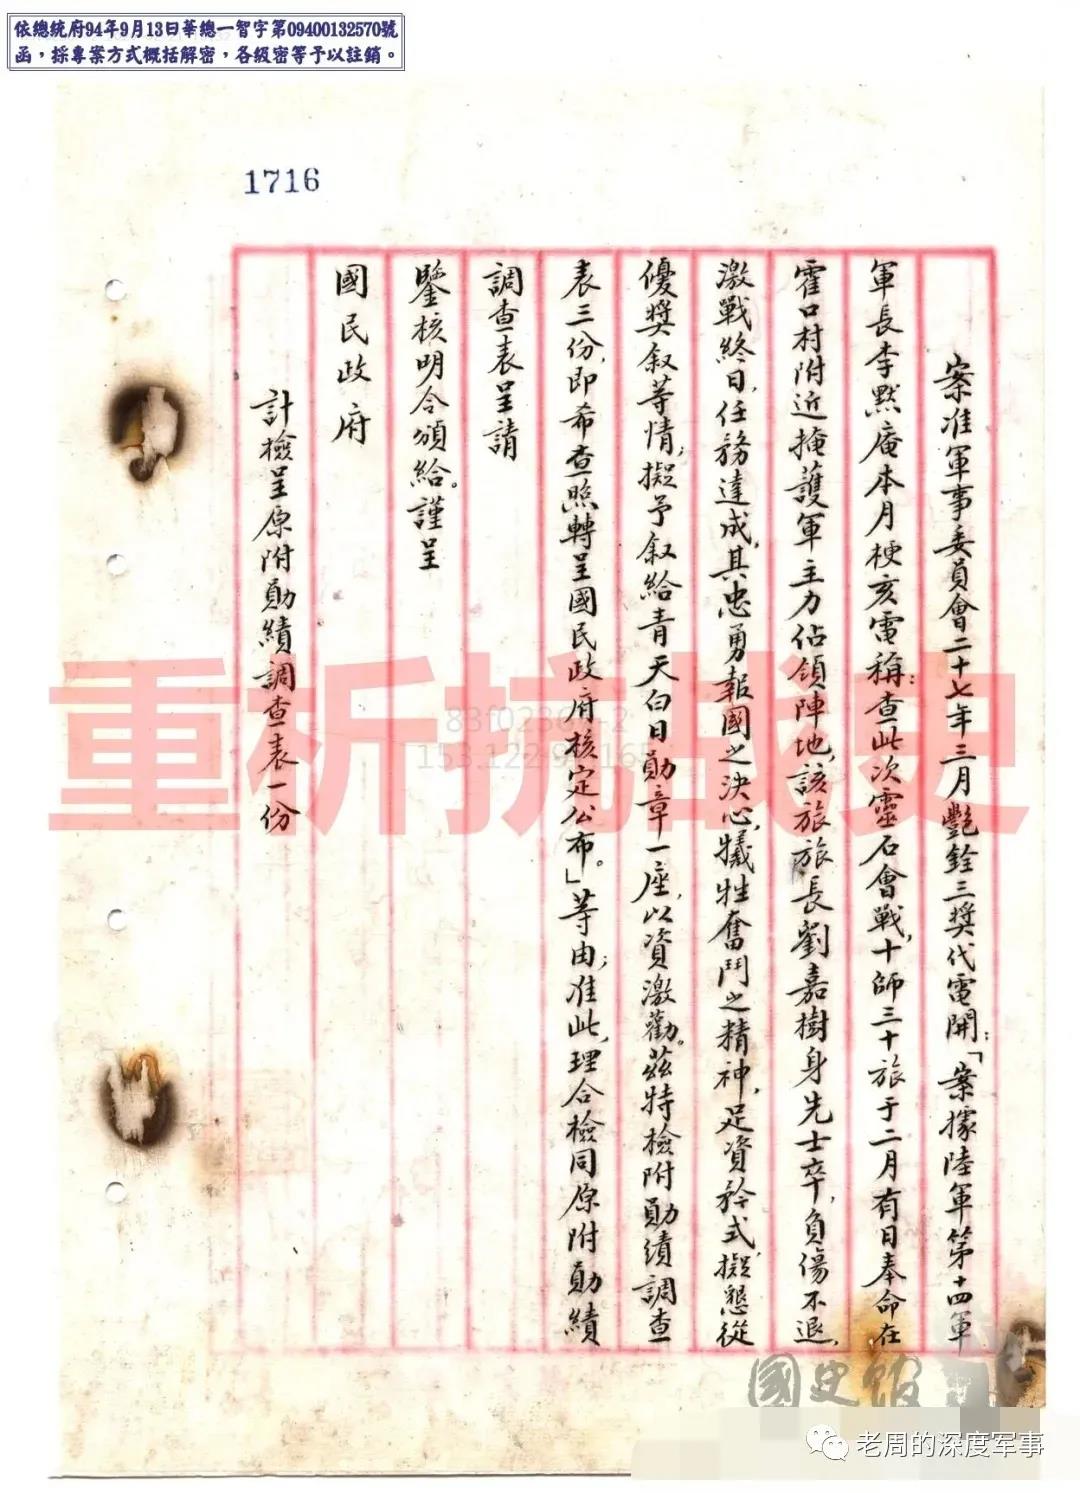 依總統府94年9月13日華總一智字第09400132570號
函，採專案方式概括解密，各級密等予以註銷。
1716
案准軍事委員會二十七年三月艷銓三獎代電開：「案據陸軍第十四軍
軍長李默庵本月梗亥電稱：查此次靈石會戰，十師三十旅于二月有日奉命在
霍口村附近掩護軍主力佔領陣地，該旅旅長劉嘉樹身先士卒，負傷不退，
激戰終日，任務達成，其忠勇報國之決心，犧牲奮鬥之精神，足資矜式，擬懇從
優獎叙等情；擬予叙給青天白日勛章一座，以資激勸。茲特檢附勛績調查
表三份，即希查照轉呈國民政府核定公布。」等由；准此，理合檢同原附勛績
調查表呈請
鑒核明令頒給。謹呈
國民政府
計檢呈原附勛績調查表一份
重析抗战史
153.122.9 165
國史館
老周的深度军事